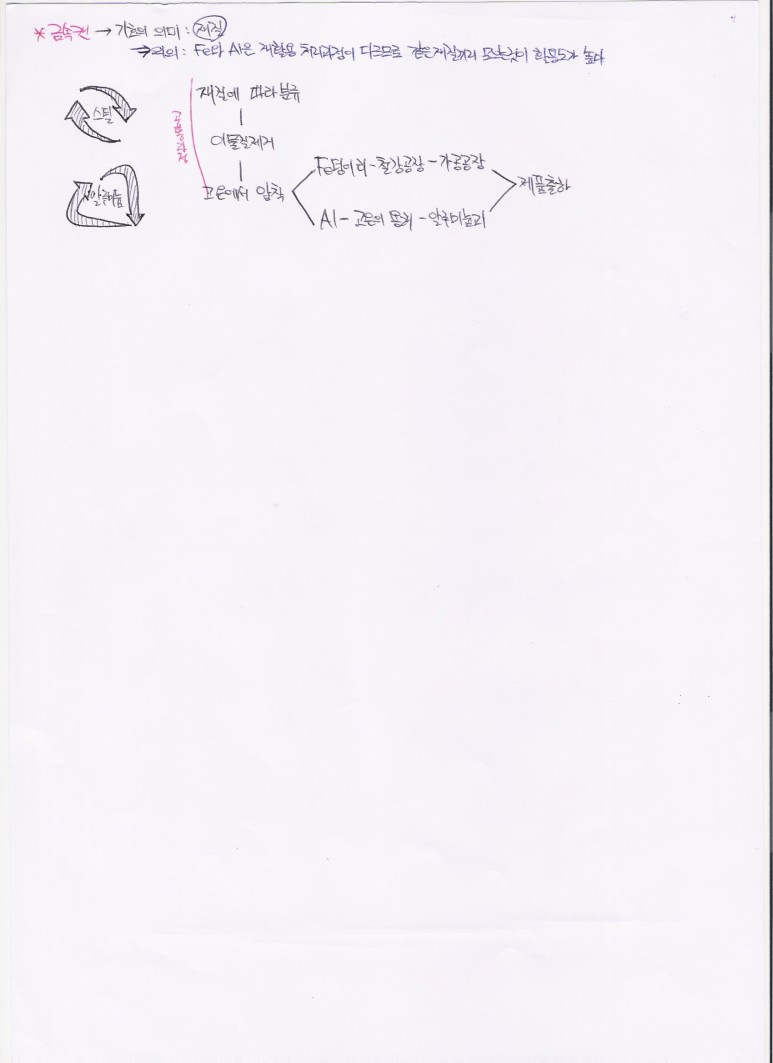 * 금속캔 → 기호의 의미 : 재질
→ 의의 : Fe와 Al은 재활용 처리과정이 다르므로 같은재질끼리 모으는것이 활용도가 높다
스틸
알루미늄
공통과정
재질에 따라 분류
이물질제거
고온에서 압착
Fe덩어리 - 철강공장 - 가공공장
Al - 고온의 용기 - 알루미늄괴
제품출하